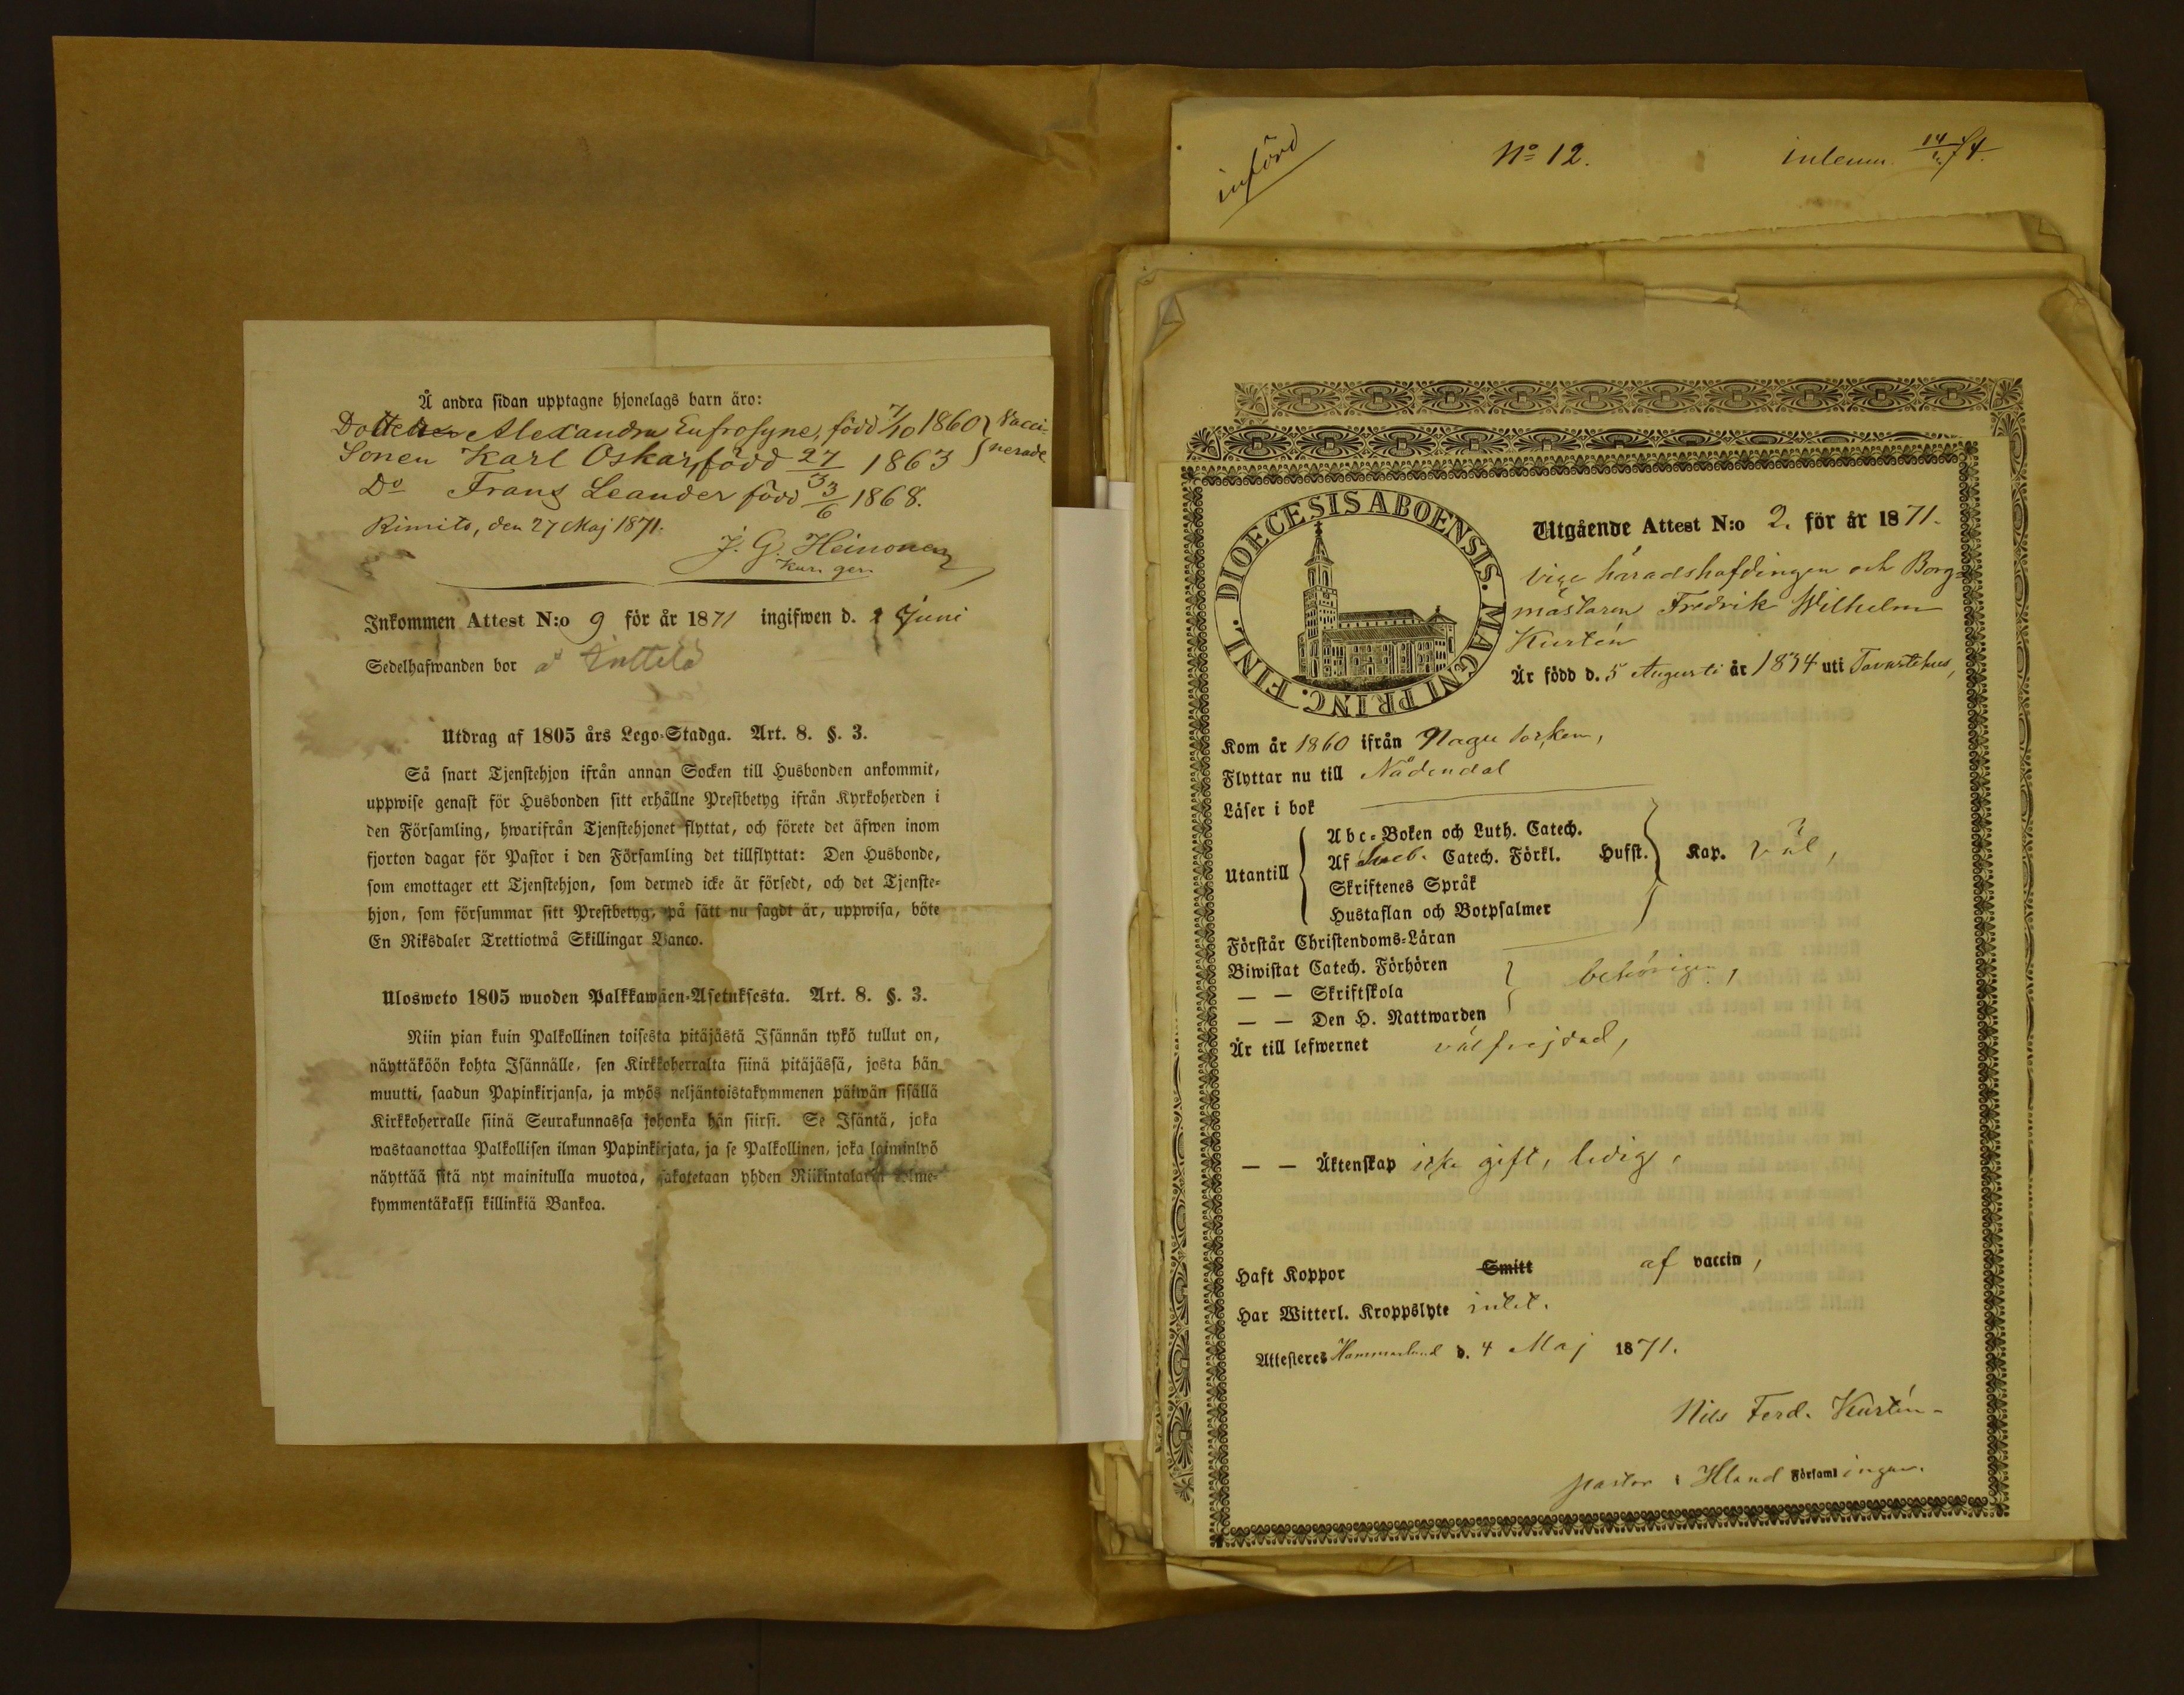 Å andra sidan upptagne hjonelags barn äro:
Dotter Alexandra Eufrosyne, född 7/10 1860 } Vacci-
Sonen Karl Oskar, född 27/3 1863 } nerade
Do Frans Leander född 3/6 1868.
Rimito, den 27 Maj 1871.
J. G. Heinonen
Inkommen Attest N:o 9 för år 1871 ingifwen d. 2 Juni
Sedelhafwanden bor å
Utdrag af 1805 års Lego-Stadga. Art. 8. §. 3.
Så snart Tjenstehjon ifrån annan Socken till Husbonden ankommit,
uppwise genast för Husbonden sitt erhållne Prestbetyg ifrån Kyrkoherden i
den Församling, hwarifrån Tjenstehjonet flyttat, och förete det äfwen inom
fjorton dagar för Pastor i den Församling det tillflyttat: Den Husbonde,
som emottager ett Tjenstehjon, som dermed icke är försedt, och det Tjenste-
hjon, som försummar sitt Prestbetyg, på sätt nu sagdt är, uppwisa, böte
En Riksdaler Trettiotwå Skillingar Banco.
Ulosweto 1805 wuoden Palkkawäen-Asetuksesta. Art. 8. §. 3.
Niin pian kuin Palkollinen toisesta pitäjästä Isännän tykö tullut on,
näyttäköön kohta Isännälle, sen Kirkkoherralta siinä pitäjässä, josta hän
muutti, saadun Papinkirjansa, ja myös neljäntoistakymmenen päiwän sisällä
Kirkkoherralle siinä Seurakunnassa johonka hän siirsi. Se Isäntä, joka
wastaanottaa Palkollisen ilman Papinkirjata, ja se Palkollinen, joka laiminlyö
näyttää sitä nyt mainitulla muotoa, sakotetaan yhden Riikintalarin kolme-
kymmentäkaksi killinkiä Bankoa.
införd
No 12.
inlemn. 14/ 74.
DIOECESIS ABOENSIS. MAGNI PRINC. FINL.
Utgående Attest N:o 2. för år 1871.
Vice häradshöfdingen och Borg-
mästaren Fredrik Wilhelm
Kurtén
Är född d. 5 Augusti år 1834 uti Tavastehus,
Kom år 1860 ifrån Nagu socken,
Flyttar nu till Nådendal
Läser i bok
Utantill { Abc-Boken och Luth. Catech.
Af Sveb. Catech. Förkl. Hufst. } Kap. väl,
Skriftenes Språk
Hustaflan och Botpsalmer
Förstår Christendoms-Läran
Biwistat Catech. Förhören } behörigen,
— — Skriftskola
— — Den H. Nattwarden
Är till lefwernet välfrejdad,
— — Äktenskap icke gift, ledig,
Haft Koppor Smitt af vaccin,
Har Witterl. Kroppslyte intet.
Attesteres Hammarland d. 4 Maj 1871.
Nils Ferd. Kurtén
pastor i Hland Församlingen.